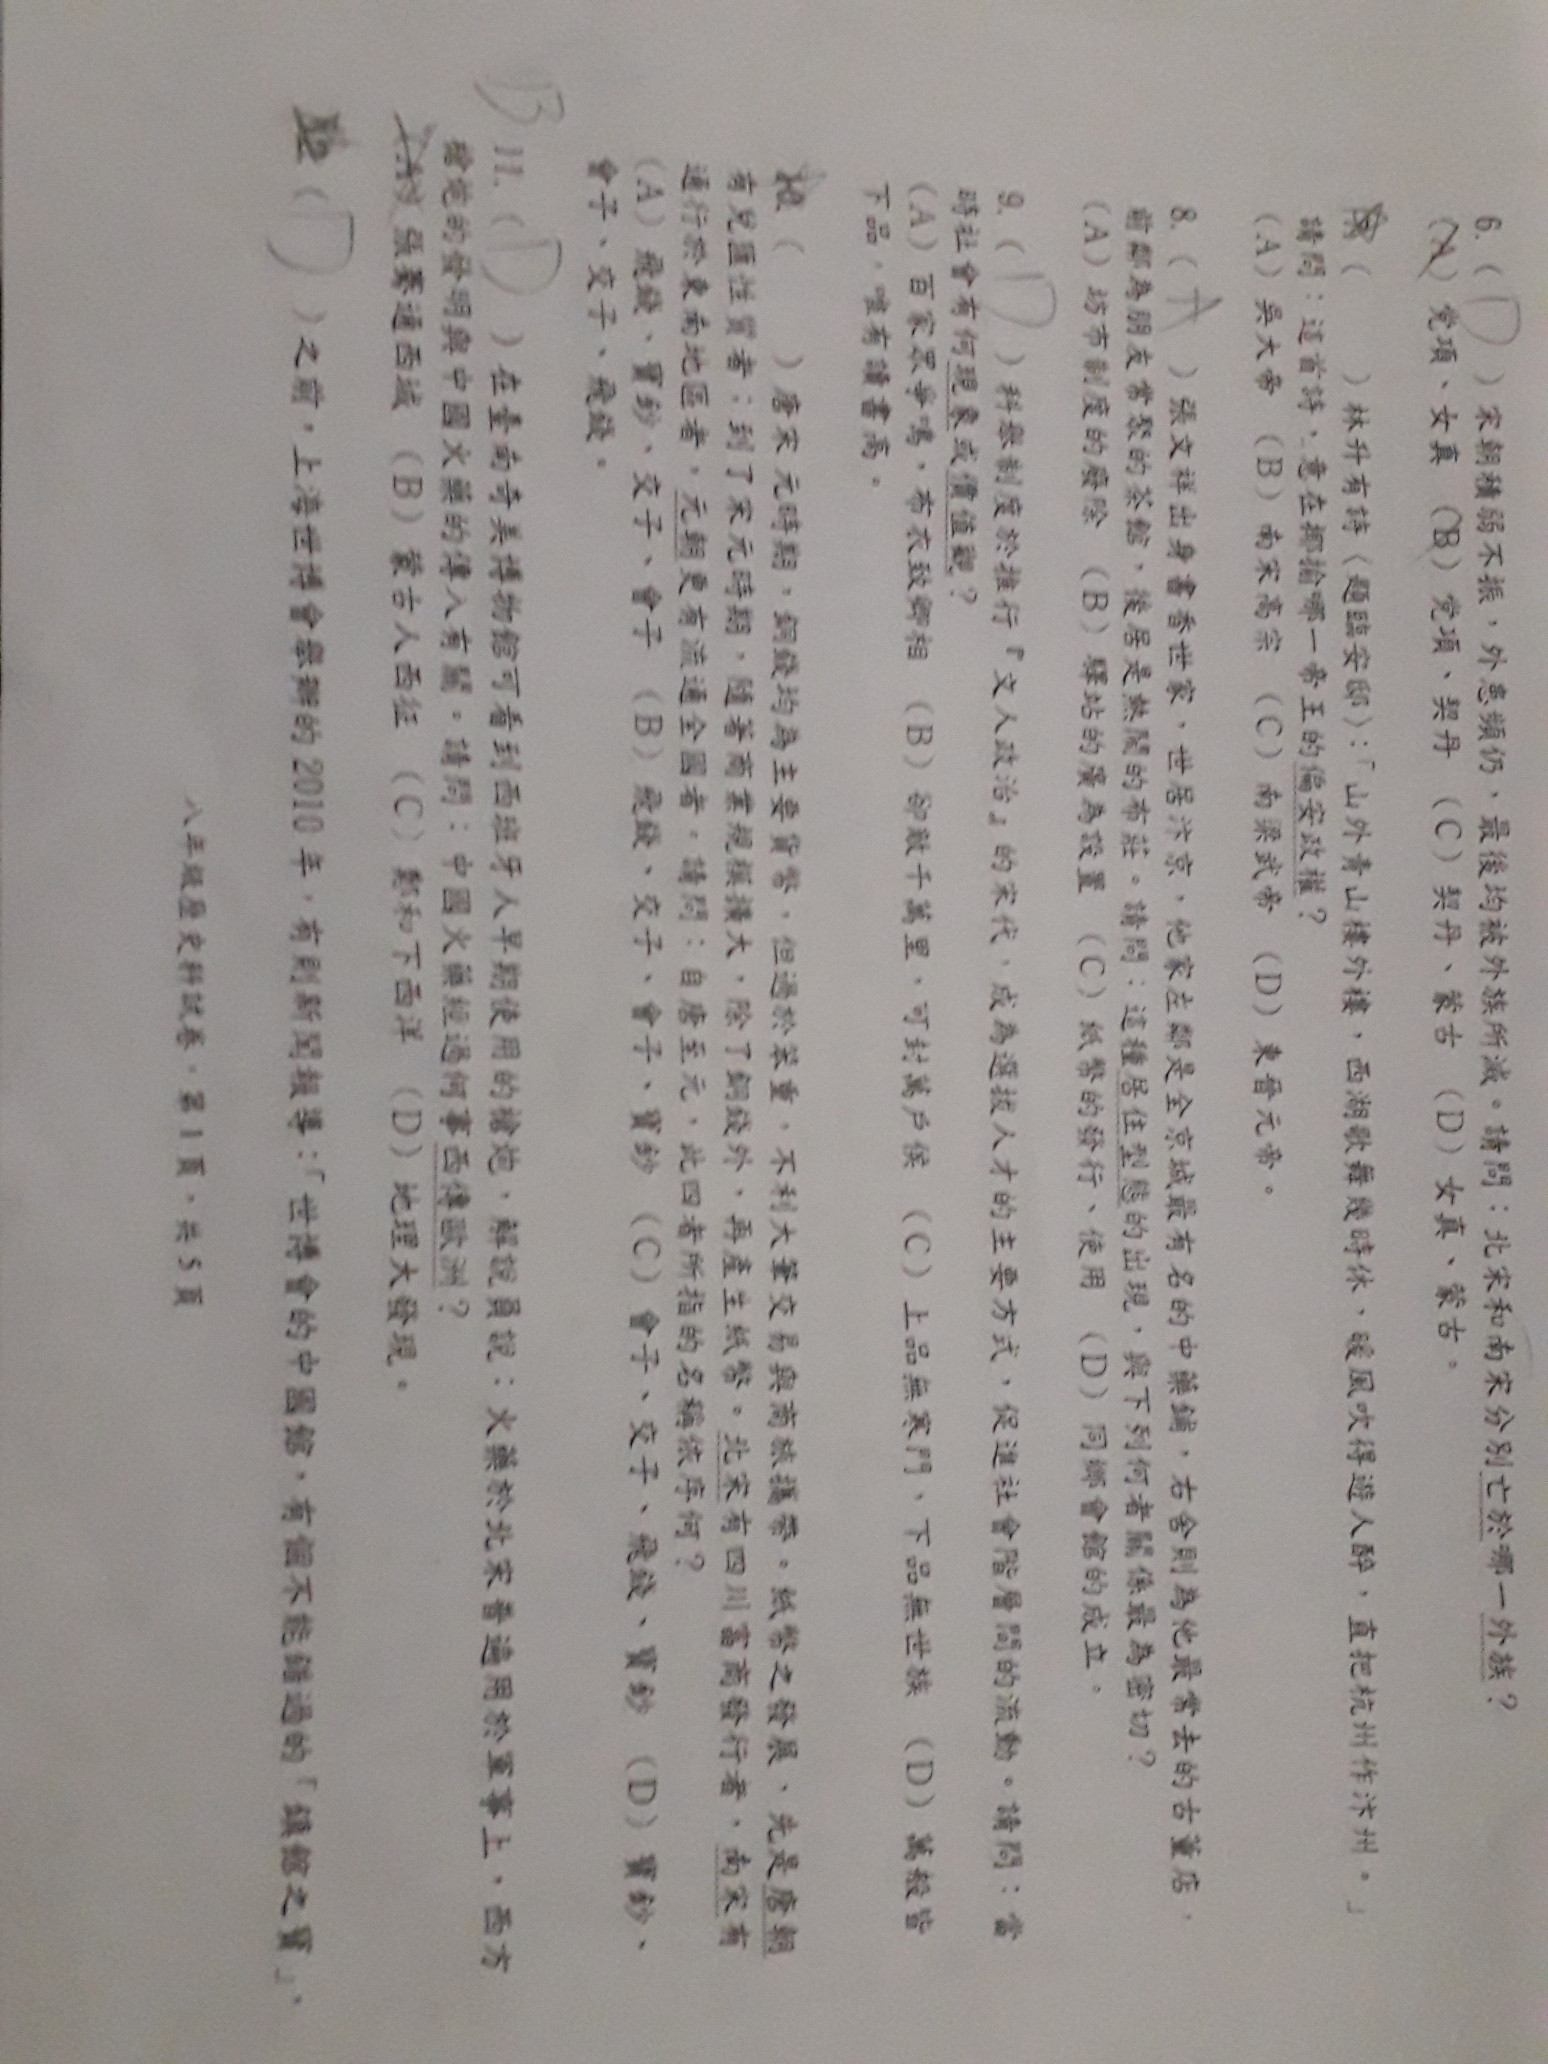 6.（D）宋朝積弱不振，外患頻仍、最後均被外族所滅。請問：北宋和南宋分別亡於哪一外族？
（A）党項、女真 （B）党項、契丹 （C）契丹、蒙古 （D）女真、蒙古。
（ ）林升有詩（題臨安邸）：「山外青山樓外樓，西湖歌舞幾時休，暖風吹得遊人醉，直把杭州作汴州。」
請問：這首詩，意在揶揄哪一帝王的偏安政權？
（A）吳大帝 （B）南宋高宗 （C）南梁武帝 （D）東晉元帝。
8.（A）張文祥出身書香世家，世居汴京，他家左鄰是全京城最有名的中藥鋪，右舍則為他最常去的古董店，
前鄰為朋友常聚的茶館，後居是熱鬧的布莊。請問：這種居住型態的出現，與下列何者關係最為密切？
（A）坊市制度的廢除 （B）驛站的廣為設置 （C）紙幣的發行、使用 （D）同鄉會館的成立。
9.（D）科舉制度於推行『文人政治』的宋代，成為選拔人才的主要方式，促進社會階層間的流動。請問：當
時社會有何現象或價值觀？
（A）百家眾爭鳴，布衣致卿相 （B）卻敵千萬里，可封萬戶侯 （C）上品無寒門，下品無世族 （D）萬般皆
下品，唯有讀書高。
（ ）唐宋元時期，銅錢均為主要貨幣，但過於笨重，不利大筆交易與商旅攜帶。紙幣之發展，先是唐朝
有兌匯性質者；到了宋元時期，隨著商業規模擴大，除了銅錢外，再產生紙幣。北宋有四川富商發行者，南宋有
通行於東南地區者，元朝更有流通全國者。請問：自唐至元，此四者所指的名稱依序何？
（A）飛錢、寶鈔、交子、會子 （B）飛錢、交子、會子、寶鈔 （C）會子、交子、飛錢、寶鈔 （D）寶鈔、
會子、交子、飛錢。
B 11.（D）在臺南奇美博物館可看到西班牙人早期使用的槍炮，解說員說：火藥於北宋普遍用於軍事上，西方
槍炮的發明與中國火藥的傳入有關。請問：中國火藥經過何事西傳歐洲？
張騫通西域 （B）蒙古人西征 （C）鄭和下西洋 （D）地理大發現。
（D）之前，上海世博會舉辦的2010年，有則新聞報導：「世博會的中國館，有個不能錯過的「鎮館之寶」，
八年級歷史科試卷，第1頁，共5頁